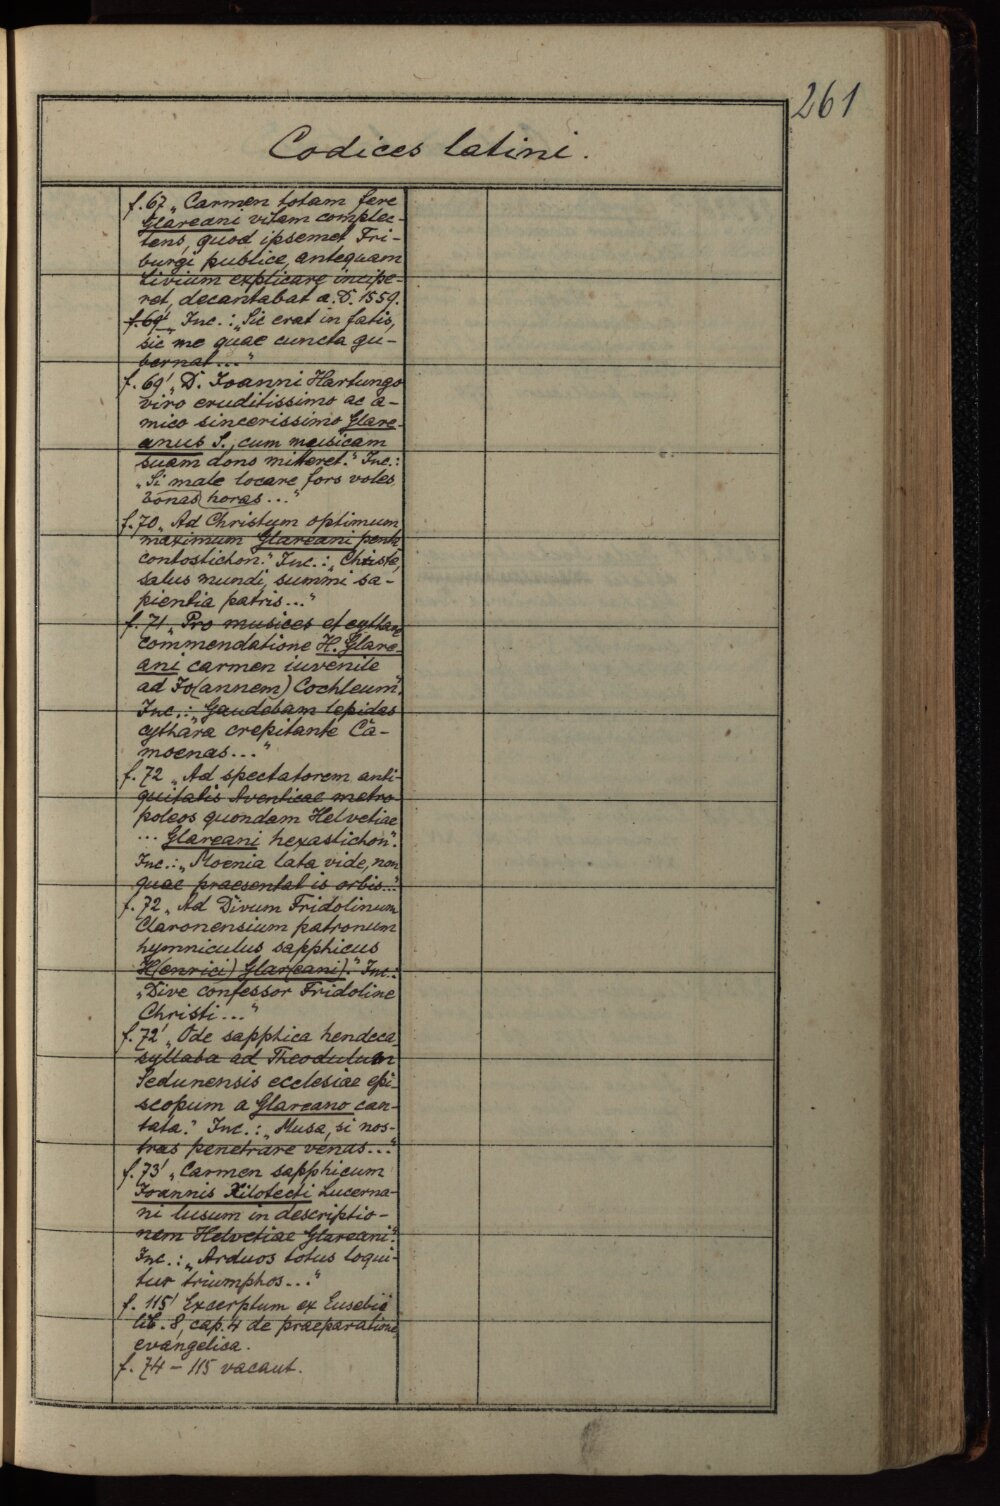 261
Codices latini.
f. 67 „Carmen totam fere
Glareani vitam complec-
tens, quod ipsemet Fri-
burgi publice, antequam
Livium explicare incipe-
ret, decantabat a. D. 1559.
f. 69' Inc.: „Sic erat in fatis,
sic me quae cuncta gu-
bernat..."
f. 69' „D. Ioanni Hartungo
viro eruditissimo ac a-
mico sincerissimo Glare-
anus S., cum musicam
suam dono mitteret." Inc.:
„Si male locare fors votes
bonas horas..."
f. 70 „Ad Christum optimum
maximum Glareani penta
contostichon." Inc.: „Christe,
salus mundi, summi sa-
pientia patris..."
f. 71 „Pro musices et cytharae
commendatione H. Glare-
ani carmen iuvenile
ad Io(annem) Cochleum".
Inc.: „Gaudebam lepidas
cythara crepitante Ca-
moenas..."
f. 72 „Ad spectatorem anti-
quitatis Aventicae metro
poleos quondam Helvetiae
... Glareani hexastichon".
Inc.: „Moenia lata vide, non
quae praesentat is orbis..."
f. 72 „Ad Divum Fridolinum
Claronensium patronum
hymniculus sapphicus
H(enrici) Glar(eani)." Inc.:
„Dive confessor Fridoline
Christi..."
f. 72' „Ode sapphica hendeca
syllaba ad Theodulum
Sedunensis ecclesiae epi-
scopum a Glareano can-
tata." Inc.: „Musa, si nos-
tras penetrare venas..."
f. 73' „Carmen sapphicum
Ioannis Xilotecti Lucerna-
ni lusum in descriptio-
nem Helvetiae Glareani".
Inc.: „Arduos totus loqui-
tur triumphos..."
f. 115' Excerptum ex Eusebii
lib. 8, cap. 4 de praeparatione
evangelica.
f. 74 – 115 vacant.